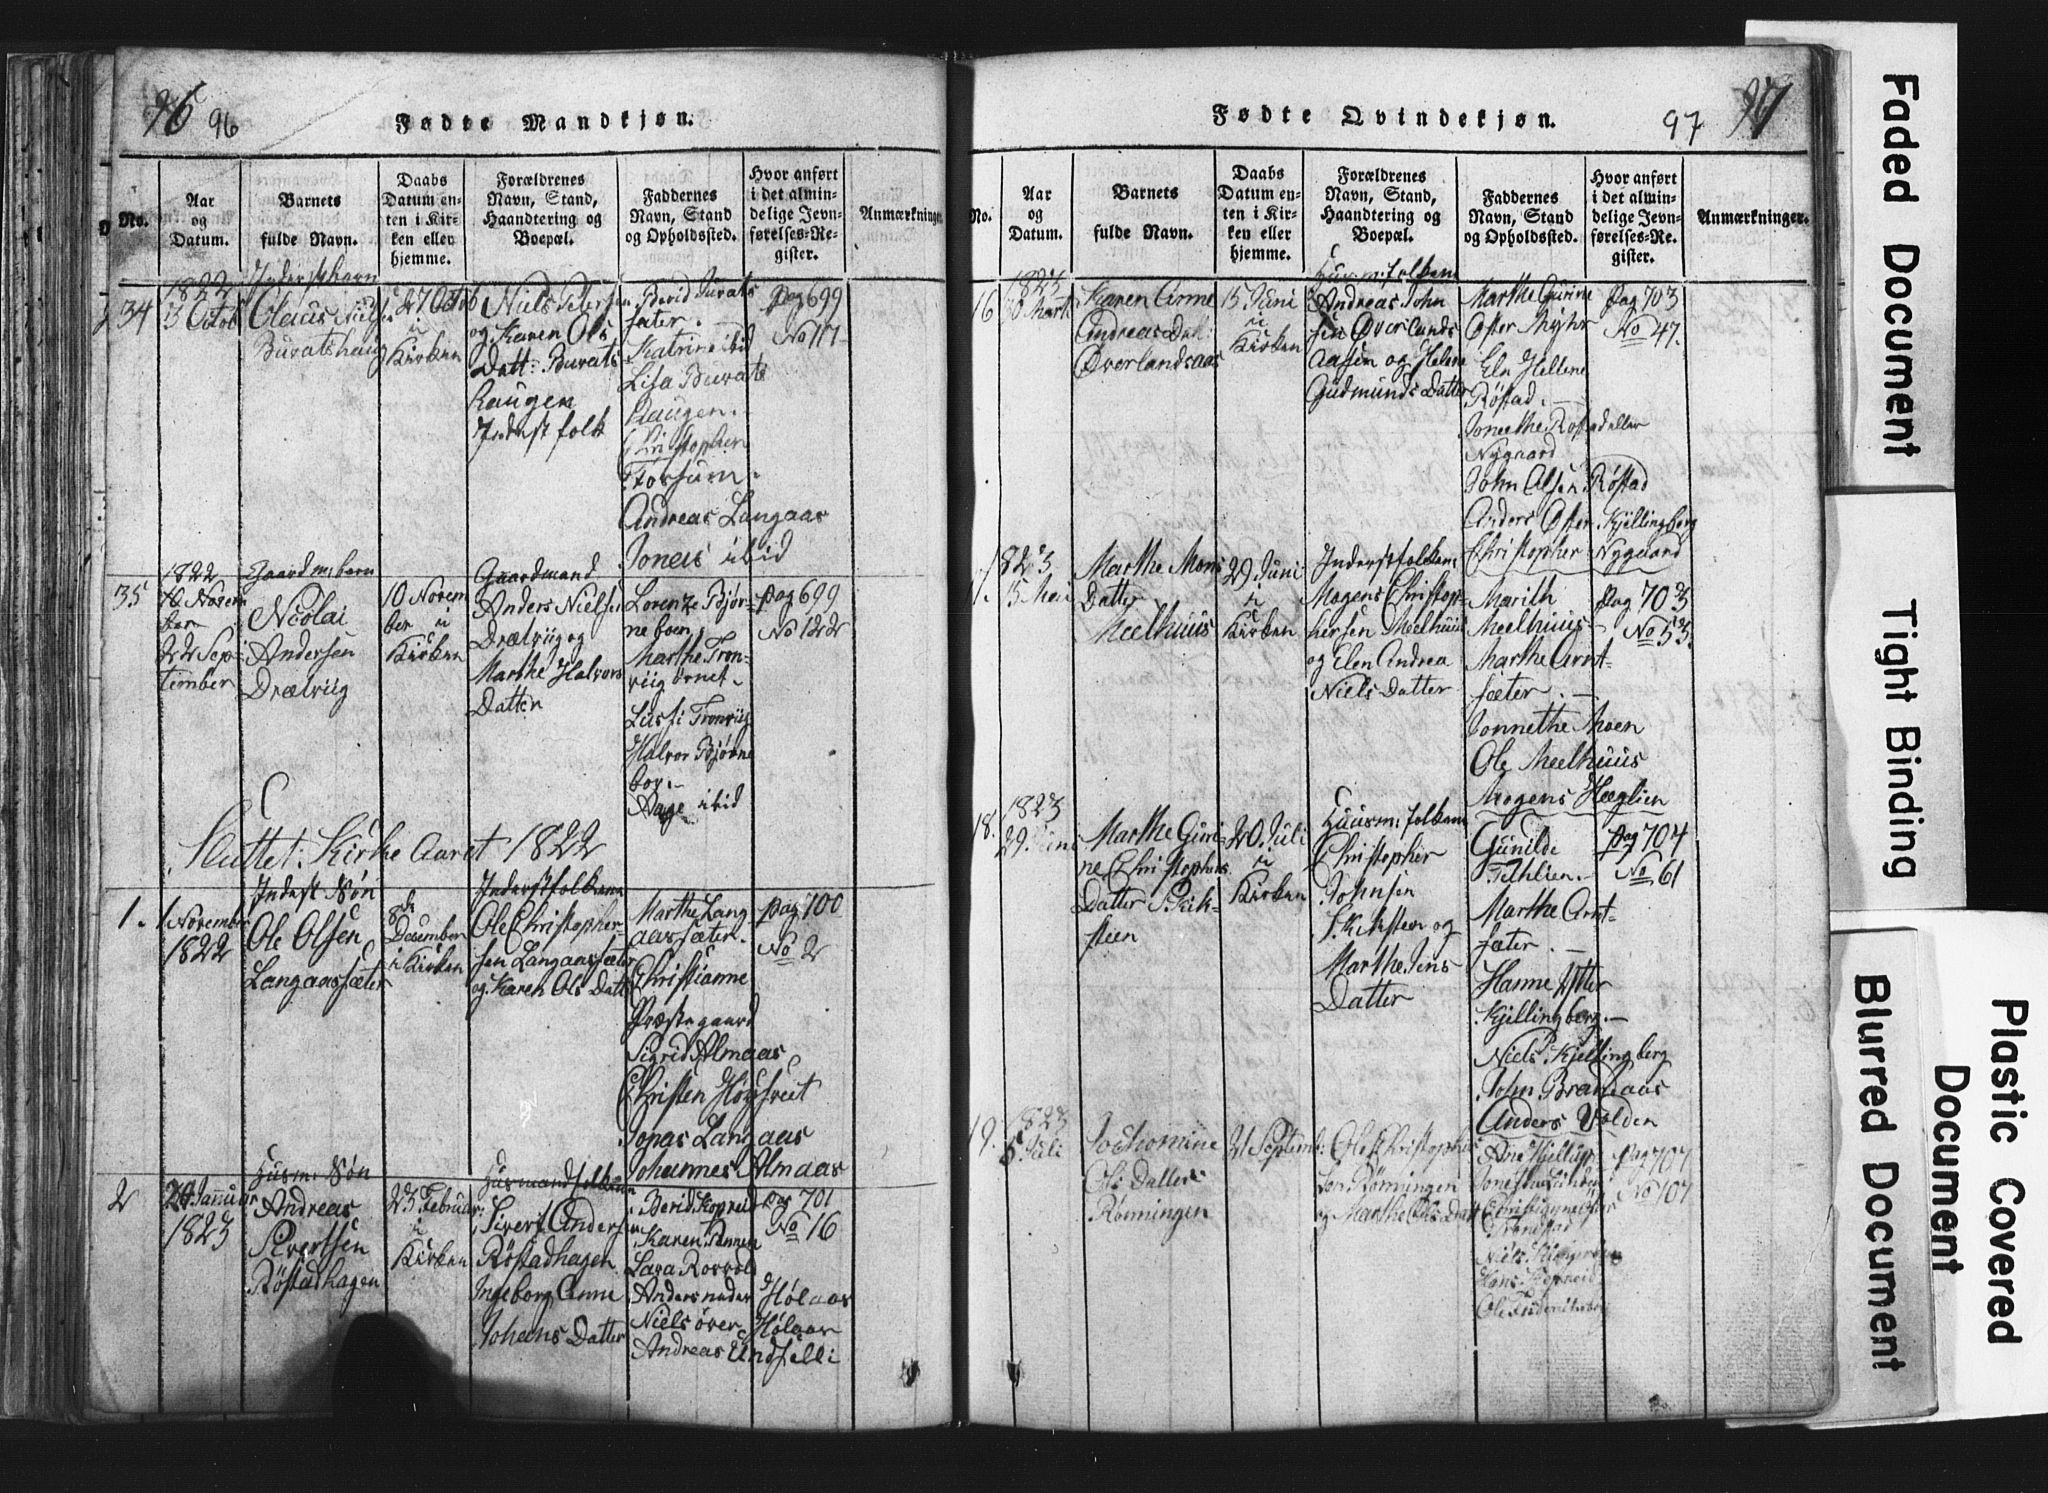 96 96
Fødte Mandkjøn.
No.
Aar
og
Datum.
Barnets
fulde Navn.
Daabs
Datum en-
ten i Kir-
ken eller
hjemme.
Forældrenes
Navn, Stand,
Haandtering og
Boepæl.
Faddernes
Navn, Stand
og Opholdssted.
Hvor anført
i det almin-
delige Jevn-
førelses-Re-
gister.
Anmærkninger.
34
1822
13 Octob
Inderstbarn
Olaus Niels
Buratshaug
27 Octob
i
Kirken
Niels Petersen
og Karen Ols
Datt: Burats
haugen
Inderstfolk
Berid Burats
sæter.
Katrine ibid
Lisa Burats
Haugen.
Christopher
Forsum.
Andreas Langaas
Jonas ibid
Pag 699
No 117
35
1822
Novem
ber
22 Sep-
tember
Gaardm: barn
Nicolai
Andersen
Drætviig
10 Novem
ber i
Kirken
Gaardmand
Anders Nielsen
Drætviig og
Marthe Halvors
Datter
Lorenze Bjør-
neboen
Marthe Tron-
viig
Lussi Tronviig
Halvor Bjørne
boe.
Aage ibid
Pag 699
No 122
Sluttet Kirke Aaret 1822
1.
1 November
1822
Inderst Søn
Ole Olsen
Langaassæter
8de
Desember
i Kirken
Inderstfolkene
Ole Christopher-
sen Langaassæter
og Karen Ols Datt
Marthe Lang
aassæter.
Christianne
Præstegaard
Sigrid Almaas
Christen
Jonas Langaas
Johannes Almaas
Pag 700
No 2
2
20 Januar
1823
Husm: Søn
Andreas
Sivertsen
Røstadhagen
23 Februar
i
Kirken
Husmandfolkene
Sivert Andersen
Røstadhagen
Ingeborg Anne
Johans Datter
Berid Kopreid
Karen Pannen
Lara Rosvold
Anders neder Hølaas
Niels øver Hølaas
Andreas Undselli
Pag 701
No 16
97 97
Fødte Qvindekjøn.
No.
Aar
og
Datum.
Barnets
fulde Navn.
Daabs
Datum en-
ten i Kir-
ken eller
hjemme.
Forældrenes
Navn, Stand,
Haandtering og
Boepæl.
Faddernes
Navn, Stand
og Opholdssted.
Hvor anført
i det almin-
delige Jevn-
førelses-Re-
gister.
Anmærkninger.
16
1823
30 Marts
Karen Anne
Andreas Dat:
Øverlandsaas
15 Juni
i
Kirken
Huusm: folkene
Andreas John
sen Øverlands
aasen og Helene
Gudmunds Datter
Marthe Gurine
Øster Myhr
Eln Hellene
Røstad.
Jonethe Røstad eller
Nygaard
John Olsen Røstad
Anders Øster Kjellingberg
Christopher Nygaard
Pag 703
No 47.
17.
1823
15 Mai
Marthe Mons
Datter
Meelhuus
29 Juni
i
Kirken
Inderstfolkene
Mogens Christop-
hersen Meelhuus
og Elen Andrea
Niels Datter
Marith
Meelhuus
Marthe Arnt-
sæter.
Jonnethe Moen
Ole Meelhuus
Mogens Hæglien
Pag 703
No 53.
18.
1823
29 Juni
Marthe Guri-
ne Christophers
Datter Skik-
steen
20 Juli
i
Kirken
Huusm: folkene
Christopher
Johnsen
Skiksteen og
Marthe Jens
Datter
Gunilde
Fihlien.
Marthe Arnt-
sæter.
Hanne Ytter
Kjellingberg.
Niels Kjellingberg
John Brandaas
Anders Volden
Pag 704
No 61
19.
1823
6 Juli
Jochomine
Ols Datter
Rønningen
21 Septemb:
Ole Christopher
sen Rønningen
og Marthe Ols Datt
Ane
Hans Kopreid
Pag 707
No 107
Faded Document
Tight Binding
Plastic Covered
Document
Blurred Document